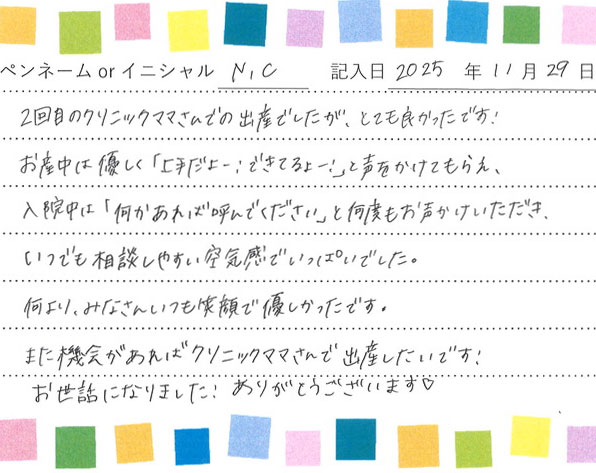 ペンネーム or イニシャル N,C 記入日 2025 年 11 月 29 日
2回目のクリニックママさんでの出産でしたが、とても良かったです!
お産中は優しく「上手だよー!できてるよー!」と声をかけてもらえ、
入院中は「何かあれば呼んでください」と何度もお声かけいただき、
いつでも相談しやすい空気感でいっぱいでした。
何より、みなさんいつも笑顔で優しかったです。
また機会があればクリニックママさんで出産したいです!
お世話になりました!ありがとうございます♡